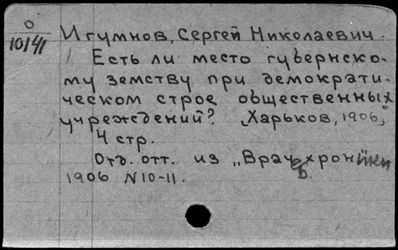 О
10141
Игумнов, Сергей Николаевич.
Есть ли место губернско-
му земству при демократи-
ческом строе общественных
учреждений? [Харьков, 1906]
4 стр.
Отд. отт. из „Врач. хроники
1906 N10-11.